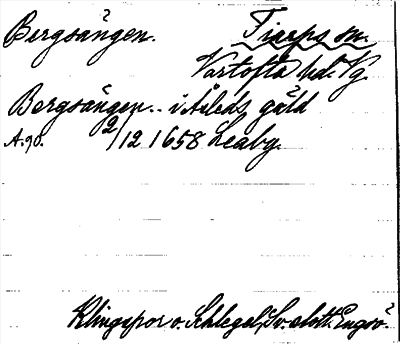 Bergsängen. Tiarps sn.
Vartofta hd. Vg.
Bergsängen.. i Åsleds gäld
A. 90. 2/12 1658 Leaby.
Klingspor o. Schlegel, Sv. slott. Engsö.